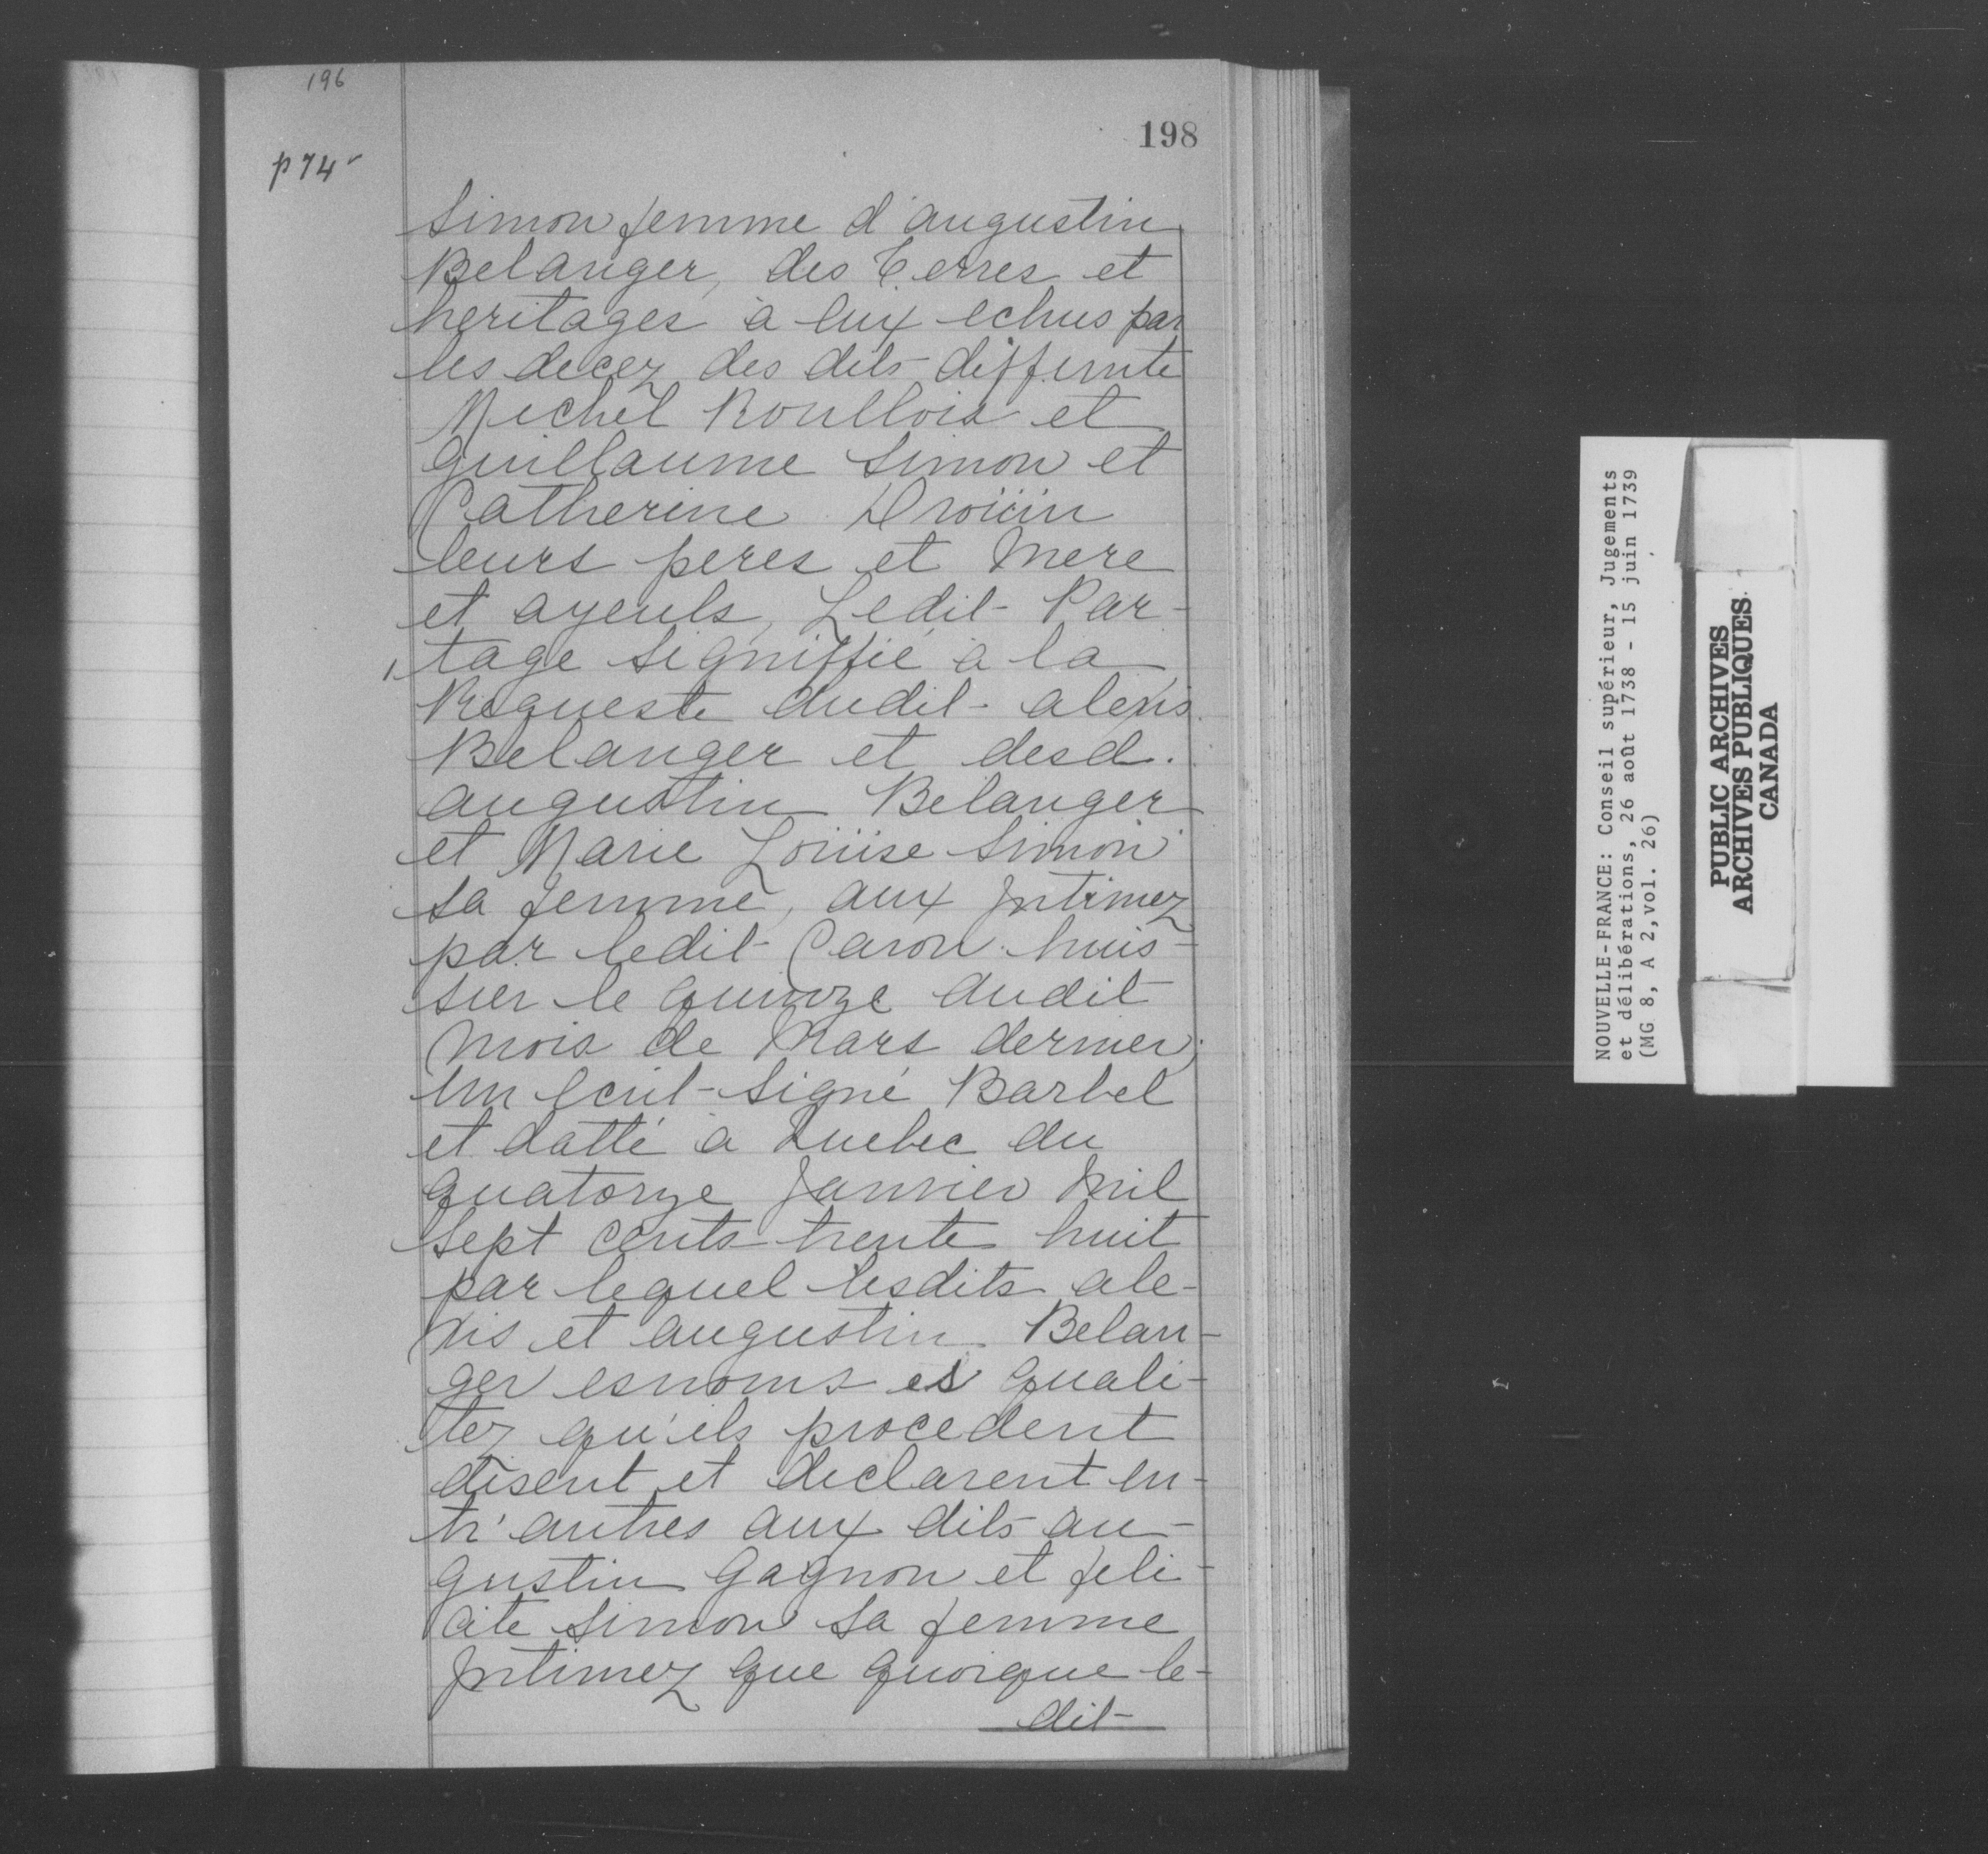 196
198
p 74
Simon femme d'augustin
Belanger, des Terres et
heritages à eux echus par
les decez des dits differnts
Michel Roullois et
guillaume Simon et
Catherine Droüin
leurs peres et Mere
et ayeuls, Ledit Par-
tage signiffié à la
Requeste dudit alexis
Belanger et desd.
augustin Belanger
et Marie Loüise Simon
sa femme, aux Jntimez
par ledit Caron huis-
sier le quinze dudit
mois de Mars dernier,
Un Ecrit signé Barbel
et datté à Quebec du
quatorze Janvier Mil
Sept cents trente huit
par lequel lesdits ale-
xis et augustin Belan-
ger esnoms es quali-
tez qu'ils procedent
disent et declarent en-
tr'autres aux dits au-
gustin gagnon et feli-
cite Simon sa femme
Jntimez que quoique le-
dit
NOUVELLE-FRANCE: Conseil supérieur, Jugements
et délibérations, 26 août 1738 - 15 juin 1739
(MG 8, A 2, vol. 26)
PUBLIC ARCHIVES
ARCHIVES PUBLIQUES
CANADA